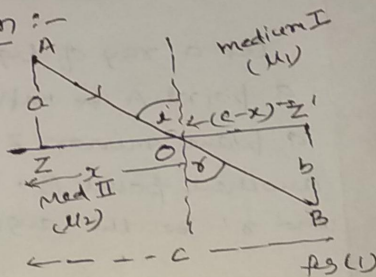 n :-
A
medium I
(μ1)
a
i
(c-x)
Z'
Z
x
O
r
b
Med II
(μ2)
B
c
fig (1)